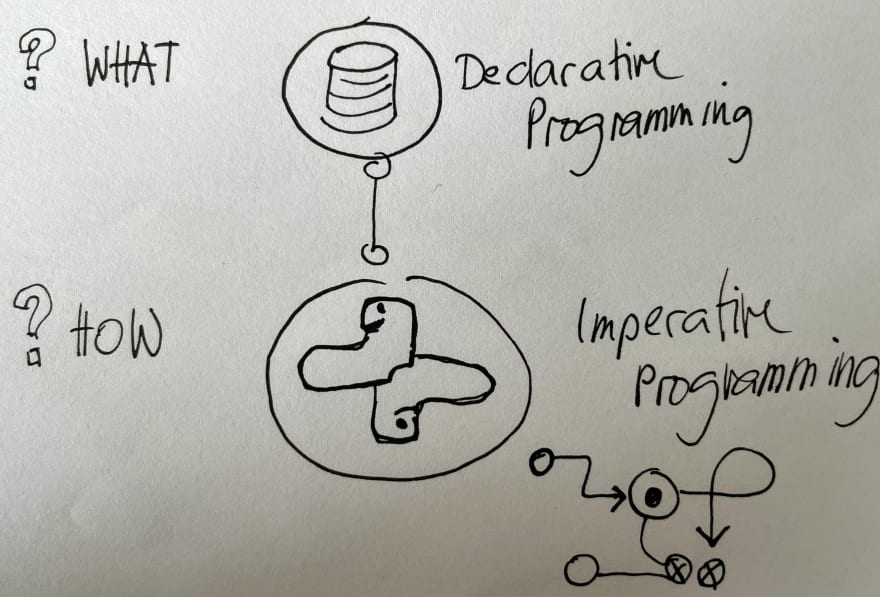 ? WHAT
Declarative
Programming
? HOW
Imperative
Programming